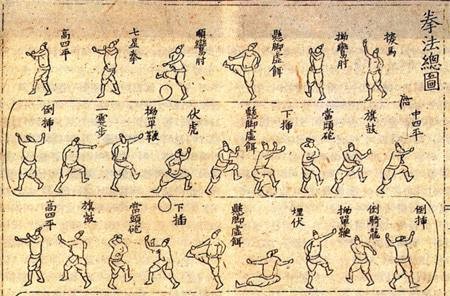 拳法總圖
探馬
拗鸞肘
懸脚虛餌
順鸞肘
七星拳
高四平
中四平
旗鼓
當頭砲
下插
懸脚虛餌
伏虎
拗單鞭
一霎步
倒揷
倒揷
倒騎龍
拗單鞭
埋伏
懸脚虛餌
下插
當頭砲
旗鼓
高四平